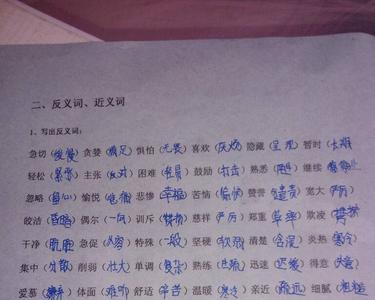 二、反义词、近义词
1、写出反义词:
急切（缓慢）贪婪（满足）惧怕（无畏）喜欢（厌恶）隐藏（呈现）暂时（长期）
轻松（紧张）主张（反对）困难（容易）鼓励（打击）熟悉（陌生）继续（
忽略（留心）愉悦（ ）悲惨（幸福）苦恼（愉悦）赞誉（谴责）宽大（严厉）
皎洁（昏暗）偶尔（一向）训斥（赞扬）慈祥（严厉）郑重（草率）欺凌（
干净（肮脏）急促（从容）特殊（一般）坚硬（软弱）清楚（含混）炎热（寒冷）
集中（分散）削弱（壮大）单调（复杂）熟练（生疏）迅速（迟缓）得意（失意）
爱慕（嫌弃）体面（难听）舒适（辛苦）温暖（寒冷）亲近（疏远）细腻（粗糙